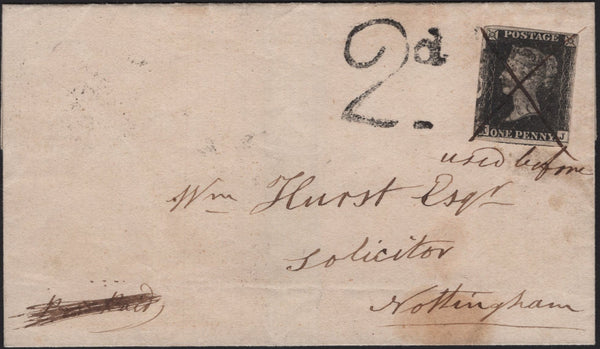 2d.
POSTAGE
ONE PENNY
J
used before
Wm Hurst Esqr
Solicitor
Nottingham